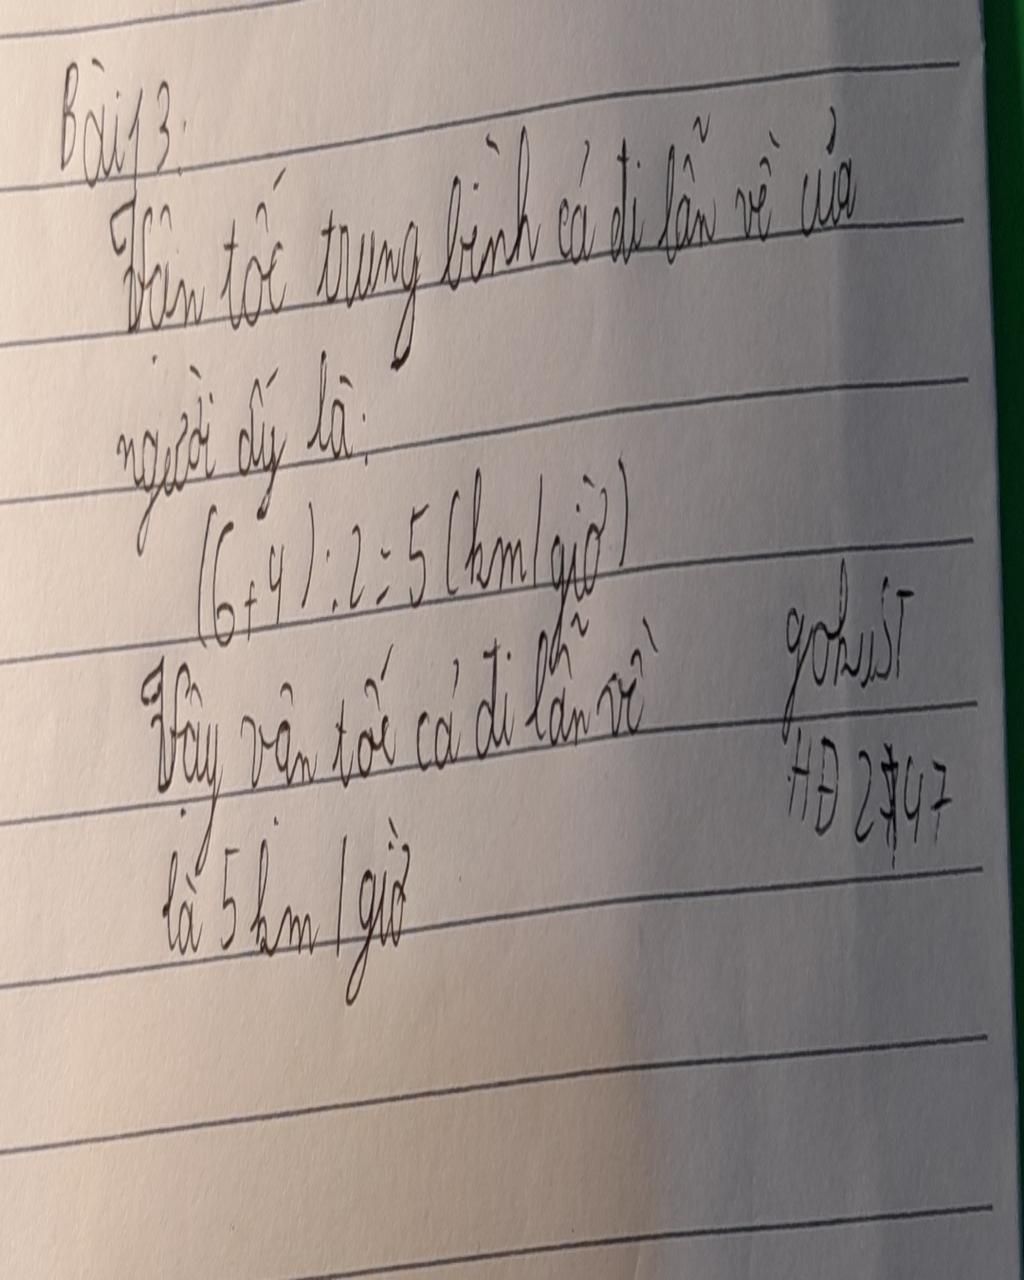 Bài 13:
Vân tốc trung bình cả đi lẫn về của
người đấy là:
(6+4):2=5(km/giờ)
Vậy vân tốc cả đi lẫn về
là 5km/giờ
HĐ 47